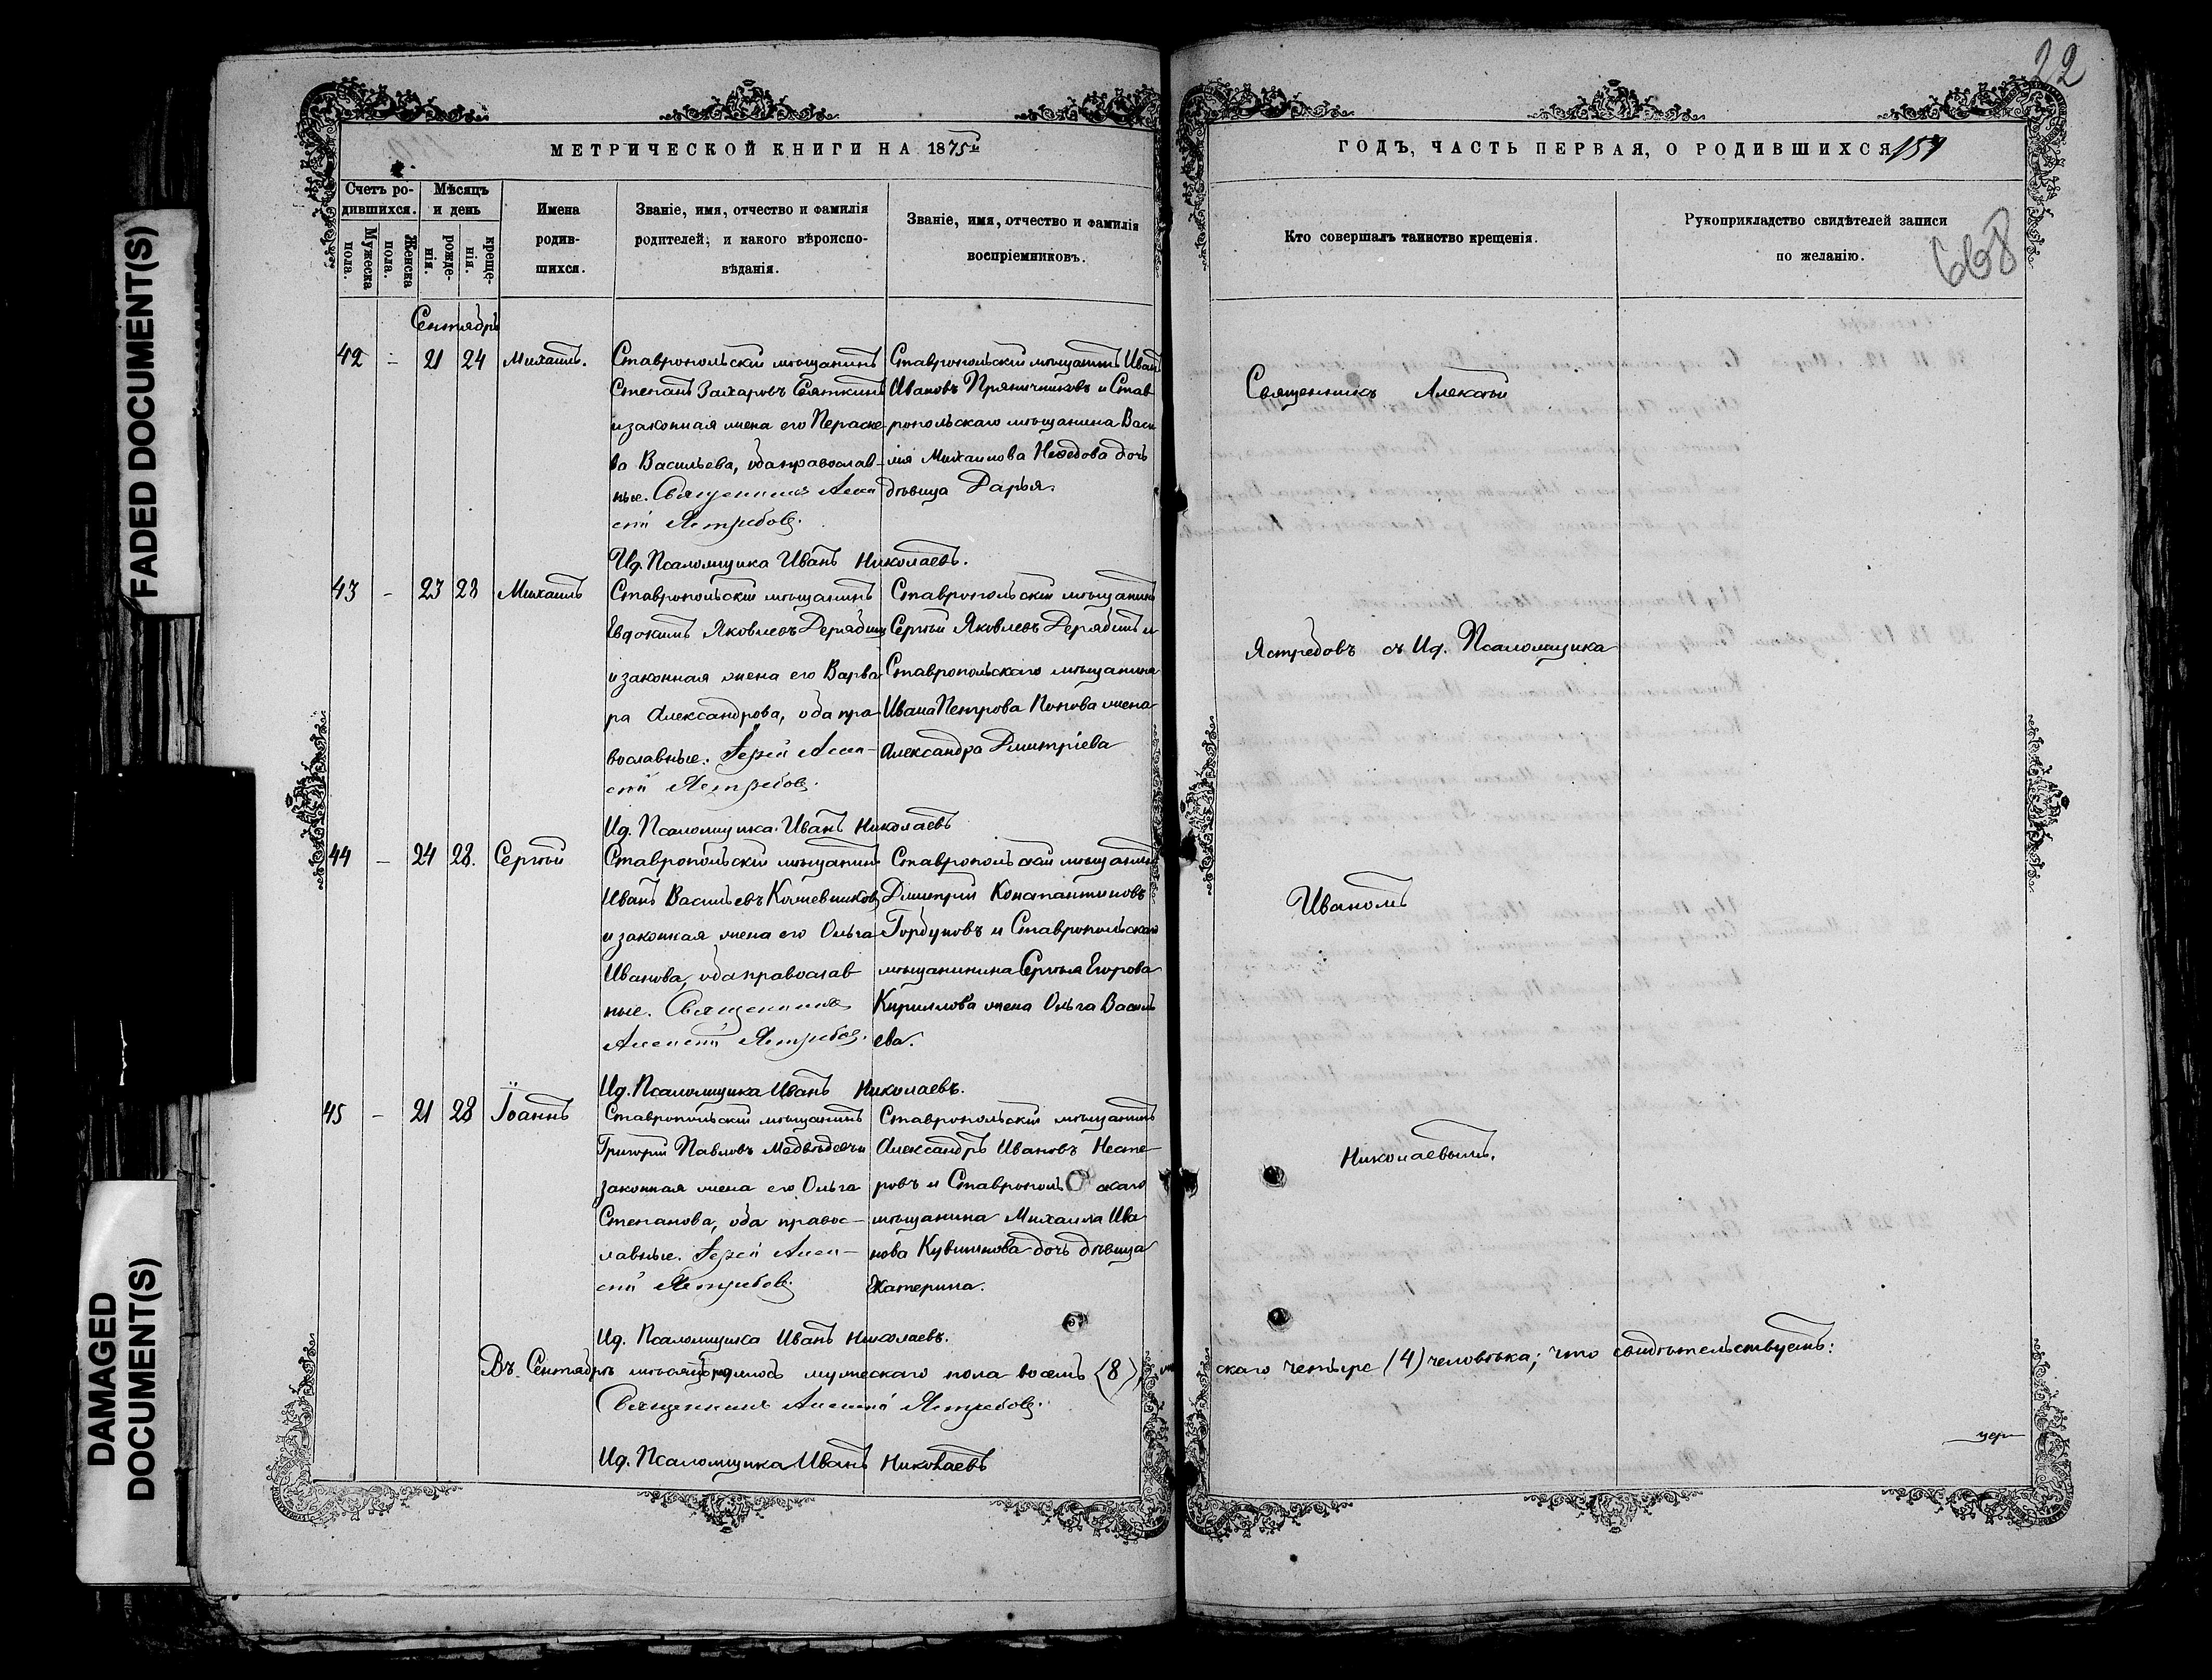 22
МЕТРИЧЕСКОЙ КНИГИ НА 1875й
ГОДЪ, ЧАСТЬ ПЕРВАЯ, О РОДИВШИХСЯ
668
Счетъ ро-
дившихся.
Мужеска
пола.
Женска
пола.
Мѣсяцъ
и день
рожде-
нія.
креще-
нія.
Имена
родив-
шихся.
Званіе, имя, отчество и фамилія
родителей, и какого вѣроиспо-
вѣданія.
Званіе, имя, отчество и фамилія
воспріемниковъ.
Кто совершалъ таинство крещенія.
Рукоприкладство свидѣтелей записи
по желанію.
Сентябрь
42 – 21 24 Михаилъ.
Ставропольскій мѣщанинъ
Степанъ Захаровъ
и законная жена его Параске-
ва Васильева, оба православ-
ные. Священникъ Алек
сѣй Ястребовъ.
Ид. Псаломщика Иванъ Николаевъ.
Ставропольскій мѣщанинъ Иванъ
Ивановъ Пряничниковъ и Став-
ропольскаго мѣщанина Васи
лія Михаилова Нефедова дочь
дѣвица Дарья.
43 – 23 28 Михаилъ
Ставропольскій мѣщанинъ
Евдокимъ Яковлевъ Дерябинъ
и законная жена его Варва-
ра Александрова, оба пра-
вославные. Іерей Алек-
сѣй Ястребовъ.
Ид. Псаломщика Иванъ Николаевъ
Ставропольскій мѣщанинъ
Сергѣй Яковлевъ Дерябинъ и
Ставропольскаго мѣщанина
Ивана Петрова Попова жена
Александра Дмитріева
44 – 24 28. Сергѣй
Ставропольскій мѣщанинъ
Иванъ Васильевъ Кожевниковъ
и законная жена его Ольга
Иванова, оба православ
ные. Священникъ
Алексѣй Ястребовъ.
Ид. Псаломщика Иванъ Николаевъ.
Ставропольскій мѣщанинъ
Дмитрій Константиновъ
Горбуновъ и Ставропольскаго
мѣщанина Сергѣя Егорова
Кириллова жена Ольга Василь
ева.
45 – 21 28 Іоаннъ
Ставропольскій мѣщанинъ
Григорій Павловъ Медвѣдевъ и
законная жена его Ольга
Степанова, оба правос-
лавные. Іерей Алек-
сѣй Ястребовъ.
Ид. Псаломщика Иванъ Николаевъ.
Ставропольскій мѣщанинъ
Александръ Ивановъ Несте-
ровъ и Ставропольскаго
мѣщанина Михаила Ива
нова Кувшинова дочь дѣвица
Екатерина.
Священникъ Алексѣй
Ястребовъ съ Ид. Псаломщика
Иваномъ
Николаевымъ.
Въ Сентябрѣ мѣсяцѣ родилось мужескаго пола восемь (8), жен
скаго четыре (4) человѣка; что свидѣтельствуемъ:
Священникъ Алексѣй Ястребовъ.
Ид. Псаломщика Иванъ Николаевъ
цер
FADED DOCUMENT(S)
DAMAGED
DOCUMENT(S)